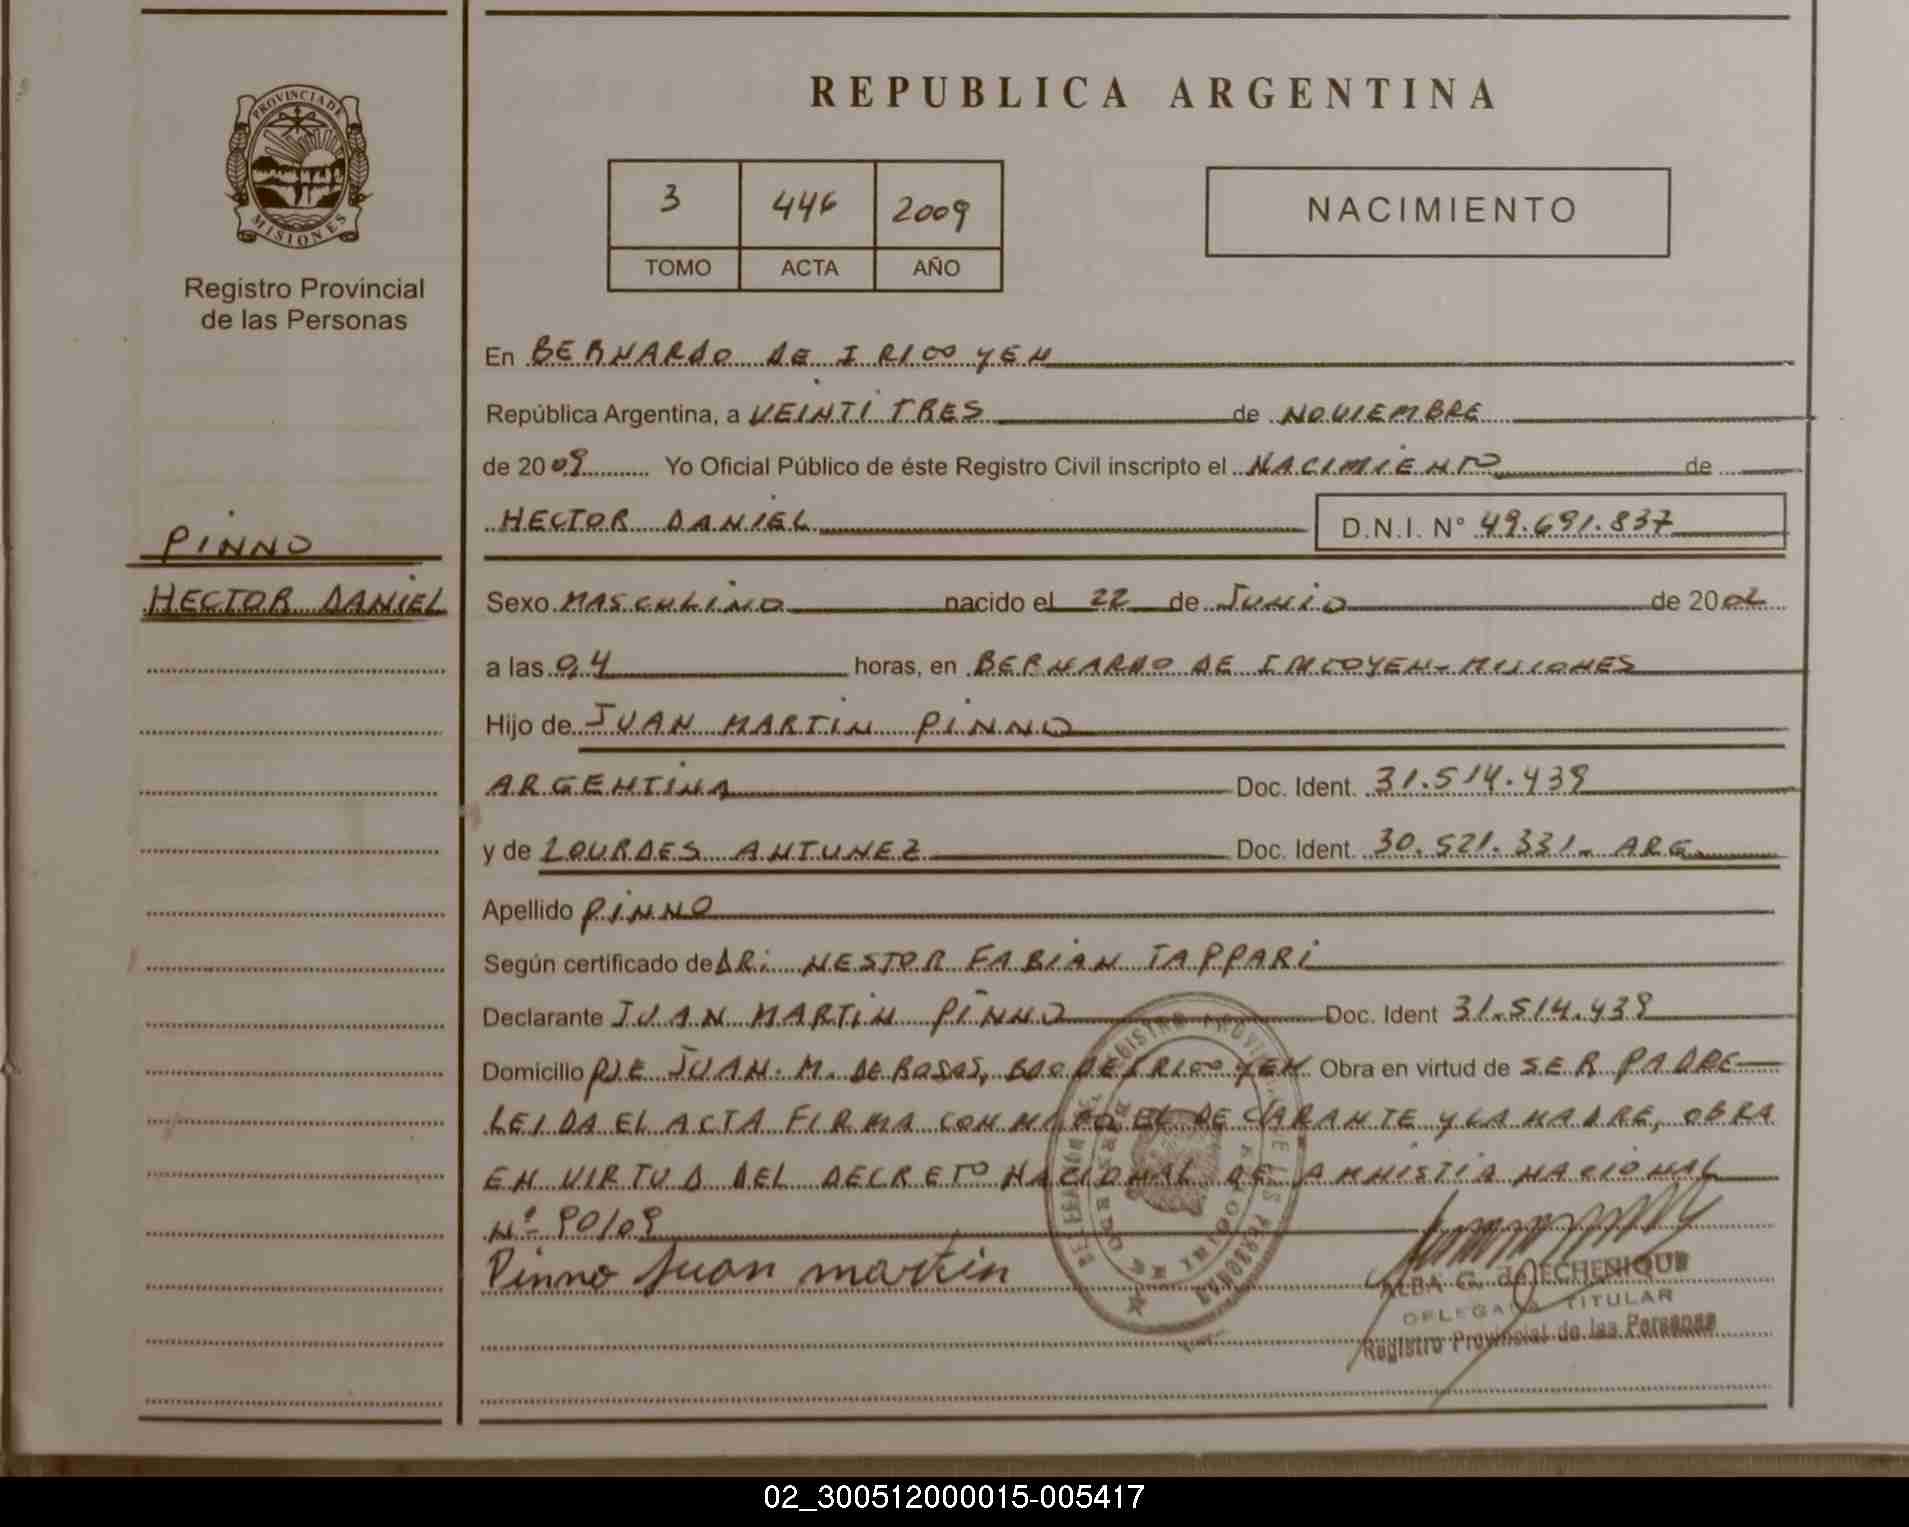 PROVINCIA DE
MISIONES
Registro Provincial
de las Personas
REPUBLICA ARGENTINA
3 446 2009
TOMO ACTA AÑO
NACIMIENTO
En BERNARDO DE IRIGOYEN
República Argentina, a VEINTITRES de NOVIEMBRE
de 2009 Yo Oficial Público de éste Registro Civil inscripto el NACIMIENTO de
HECTOR DANIEL D.N.I. N° 49.691.837
PINNO
HECTOR DANIEL
Sexo MASCULINO nacido el 22 de JUNIO de 2002
a las 04 horas, en BERNARDO DE IRIGOYEN-MISIONES
Hijo de JUAN MARTIN PINNO
ARGENTINA Doc. Ident. 31.514.439
y de LOURDES ANTUNEZ Doc. Ident. 30.521.331- ARG
Apellido PINNO
Según certificado de DR: NESTOR FABIAN TAPPARI
Declarante JUAN MARTIN PINNO Doc. Ident 31.514.439
Domicilio PJE JUAN. M. DE ROSAS, BDO DE IRIGOYEN Obra en virtud de SER PADRE
LEIDA EL ACTA FIRMA CON EL DECLARANTE Y LA MADRE, OBRA
EN VIRTUD DEL DECRETO NACIONAL DE AMNISTIA NACIONAL
Nº 90/09
Pinno Juan martin
ALBA G. de ECHENIQUE
DELEGADA TITULAR
Registro Provincial de las Personas
02_300512000015-005417